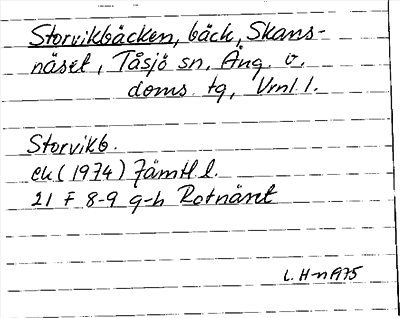 Storvikbäcken, bäck, Skans-
näset, Tåsjö sn, Ång. v.
doms. tg, Vrnl. l.
Storvikb.
ek (1974) Jämtl l.
21 F 8-9 g-h Rotnäset
L. H-n 1975